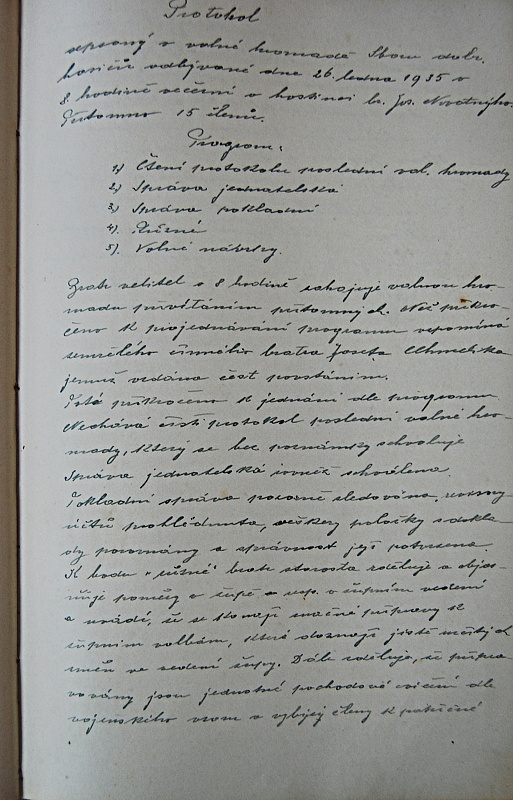 Protokol
sepsaný v valné hromadě Sboru dobr.
hasičů odbývané dne 26. ledna 1935 o
8. hodině večerní v hostinci br. Jos. Novotnýho.
Přítomno 15 členů.
Program:
1.) Čtení protokolu poslední val. hromady
2.) Správa jednatelská
3.) Správa pokladní
4.) Různé
5). Volné návrhy.
Bratr velitel o 8 hodině zahajuje valnou hro-
madu přivítáním přítomných. Než přikro-
čeno k projednávání programu vzpomíná
zemřelého činného bratra Josefa
jemuž vzdána čest povstáním.
Poté přikročeno k jednání dle programu
Nechává čísti protokol poslední valné hro-
mady, který se bez poznámky schvaluje
Správa jednatelská rovněž schválena.
Pokladní správa pozorně sledována, rozvrhy
účtů prohlédnuta, veškery položky s dokla-
dy porovnány a správnost její potvrzena.
K bodu "různé" bratr starosta sděluje a objas-
ňuje poměry v župě a zvp. v župním vedení
a uvádí, že se konají značné přípravy k
župním volbám, které doznají jistě určitých
změn ve vedení župy. Dále sděluje, že připra-
vovány jsou jednotné pochodové cvičení dle
vojenského vzoru a vybízí členy k patřičné